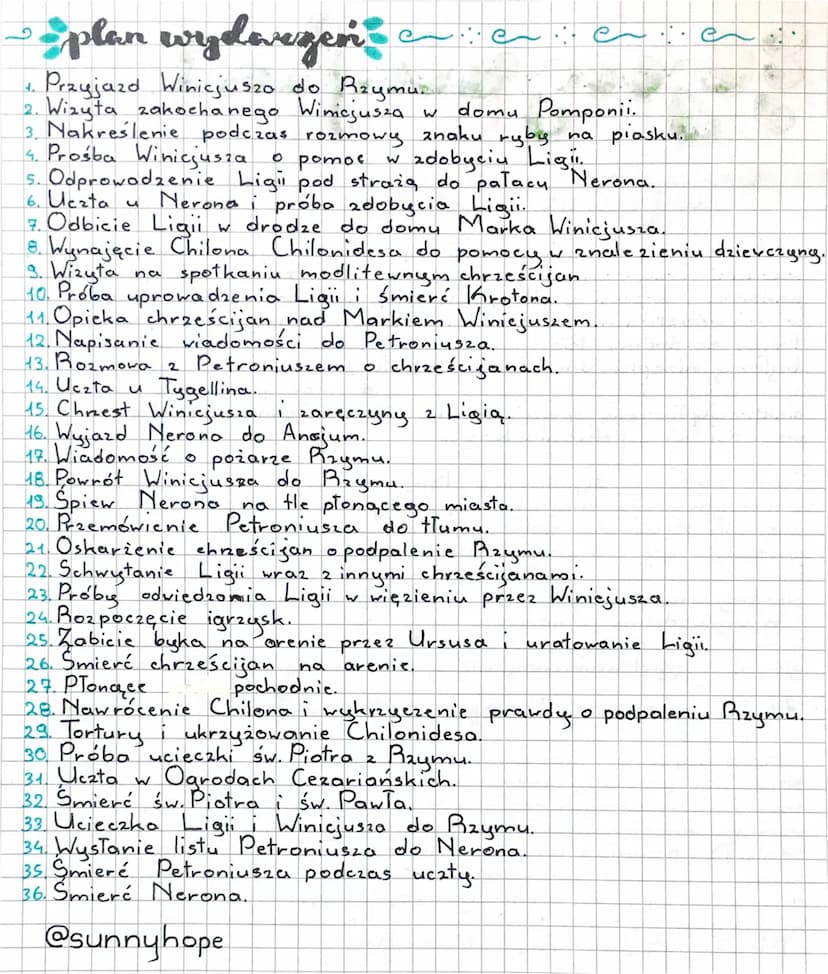 plan wydarzeń
1. Przyjazd Winicjusza do Rzymu.
2. Wizyta zakochanego Winicjusza w domu Pomponii.
3. Nakreślenie podczas rozmowy znaku ryby na piasku.
4. Prośba Winicjusza o pomoc w zdobyciu Ligii.
5. Odprowadzenie Ligii pod strażą do pałacu Nerona.
6. Uczta u Nerona i próba zdobycia Ligii.
7. Odbicie Ligii w drodze do domu Marka Winicjusza.
8. Wynajęcie Chilona Chilonidesa do pomocy w znalezieniu dziewczyny.
9. Wizyta na spotkaniu modlitewnym chrześcijan
10. Próba uprowadzenia Ligii i śmierć Krotona.
11. Opieka chrześcijan nad Markiem Winicjuszem.
12. Napisanie wiadomości do Petroniusza.
13. Rozmowa z Petroniuszem o chrześcijanach.
14. Uczta u Tygellina.
15. Chrzest Winicjusza i zaręczyny z Ligią.
16. Wyjazd Nerona do Ancjum.
17. Wiadomość o pożarze Rzymu.
18. Powrót Winicjusza do Rzymu.
19. Śpiew Nerona na tle płonącego miasta.
20. Przemówienie Petroniusza do tłumu.
21. Oskarżenie chrześcijan o podpalenie Rzymu.
22. Schwytanie Ligii wraz z innymi chrześcijanami.
23. Próby odwiedzania Ligii w więzieniu przez Winicjusza.
24. Rozpoczęcie igrzysk.
25. Zabicie byka na arenie przez Ursusa i uratowanie Ligii.
26. Śmierć chrześcijan na arenie.
27. Płonące pochodnie.
28. Nawrócenie Chilona i wykrzyczenie prawdy o podpaleniu Rzymu.
29. Tortury i ukrzyżowanie Chilonidesa.
30. Próba ucieczki św. Piotra z Rzymu.
31. Uczta w Ogrodach Cezariańskich.
32. Śmierć św. Piotra i św. Pawła.
33. Ucieczka Ligii i Winicjusza do Rzymu.
34. Wysłanie listu Petroniusza do Nerona.
35. Śmierć Petroniusza podczas uczty.
36. Śmierć Nerona.
@sunnyhope